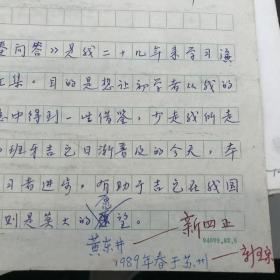 问答》是我二十几年来学习演
汇集。目的是想让初学者从我的
中得到一些借鉴，少走我所走
班牙吉它日渐普及的今天，本
习者进步，有助于吉它在我国
则是莫大的 望。
愿
黄东井
新四五
1989年春于苏州